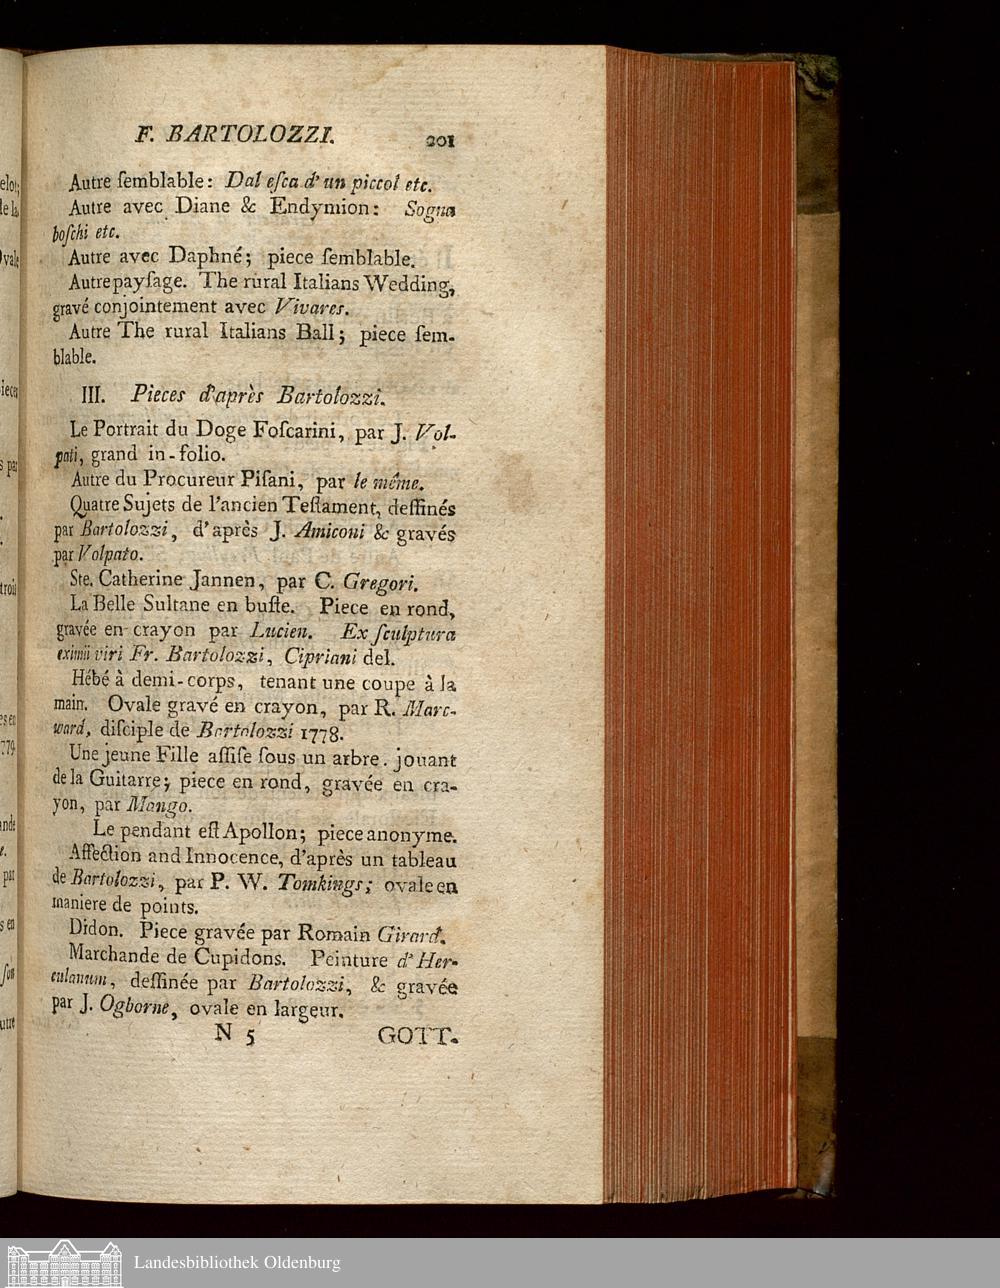 F. BARTOLOZZI.
201
Autre ſemblable: Dal eſca d'un piccol etc.
Autre avec Diane & Endymion: Sogna
boſchi etc.
Autre avec Daphné; piece ſemblable.
Autre payſage. The rural Italians Wedding,
gravé conjointement avec Vivares.
Autre The rural Italians Ball; piece ſem-
blable.
III. Pieces d'après Bartolozzi.
Le Portrait du Doge Foſcarini, par J. Vol-
pati, grand in-folio.
Autre du Procureur Piſani, par le même.
Quatre Sujets de l'ancien Teſtament, deſſinés
par Bartolozzi, d'après J. Amiconi & gravés
par Volpato.
Ste. Catherine Jannen, par C. Gregori.
La Belle Sultane en buſte. Piece en rond,
gravée en crayon par Lucien. Ex ſculptura
eximii viri Fr. Bartolozzi, Cipriani del.
Hébé à demi-corps, tenant une coupe à la
main. Ovale gravé en crayon, par R. Marc-
ward, diſciple de Bartolozzi 1778.
Une jeune Fille aſſiſe ſous un arbre. jouant
de la Guitarre; piece en rond, gravée en cra-
yon, par Mango.
Le pendant eſt Apollon; piece anonyme.
Affection and Innocence, d'après un tableau
de Bartolozzi, par P. W. Tomkings; ovale en
maniere de points.
Didon. Piece gravée par Romain Girard.
Marchande de Cupidons. Peinture d'Her-
culanum, deſſinée par Bartolozzi, & gravée
par J. Ogborne, ovale en largeur.
N 5
GOTT.
Landesbibliothek Oldenburg